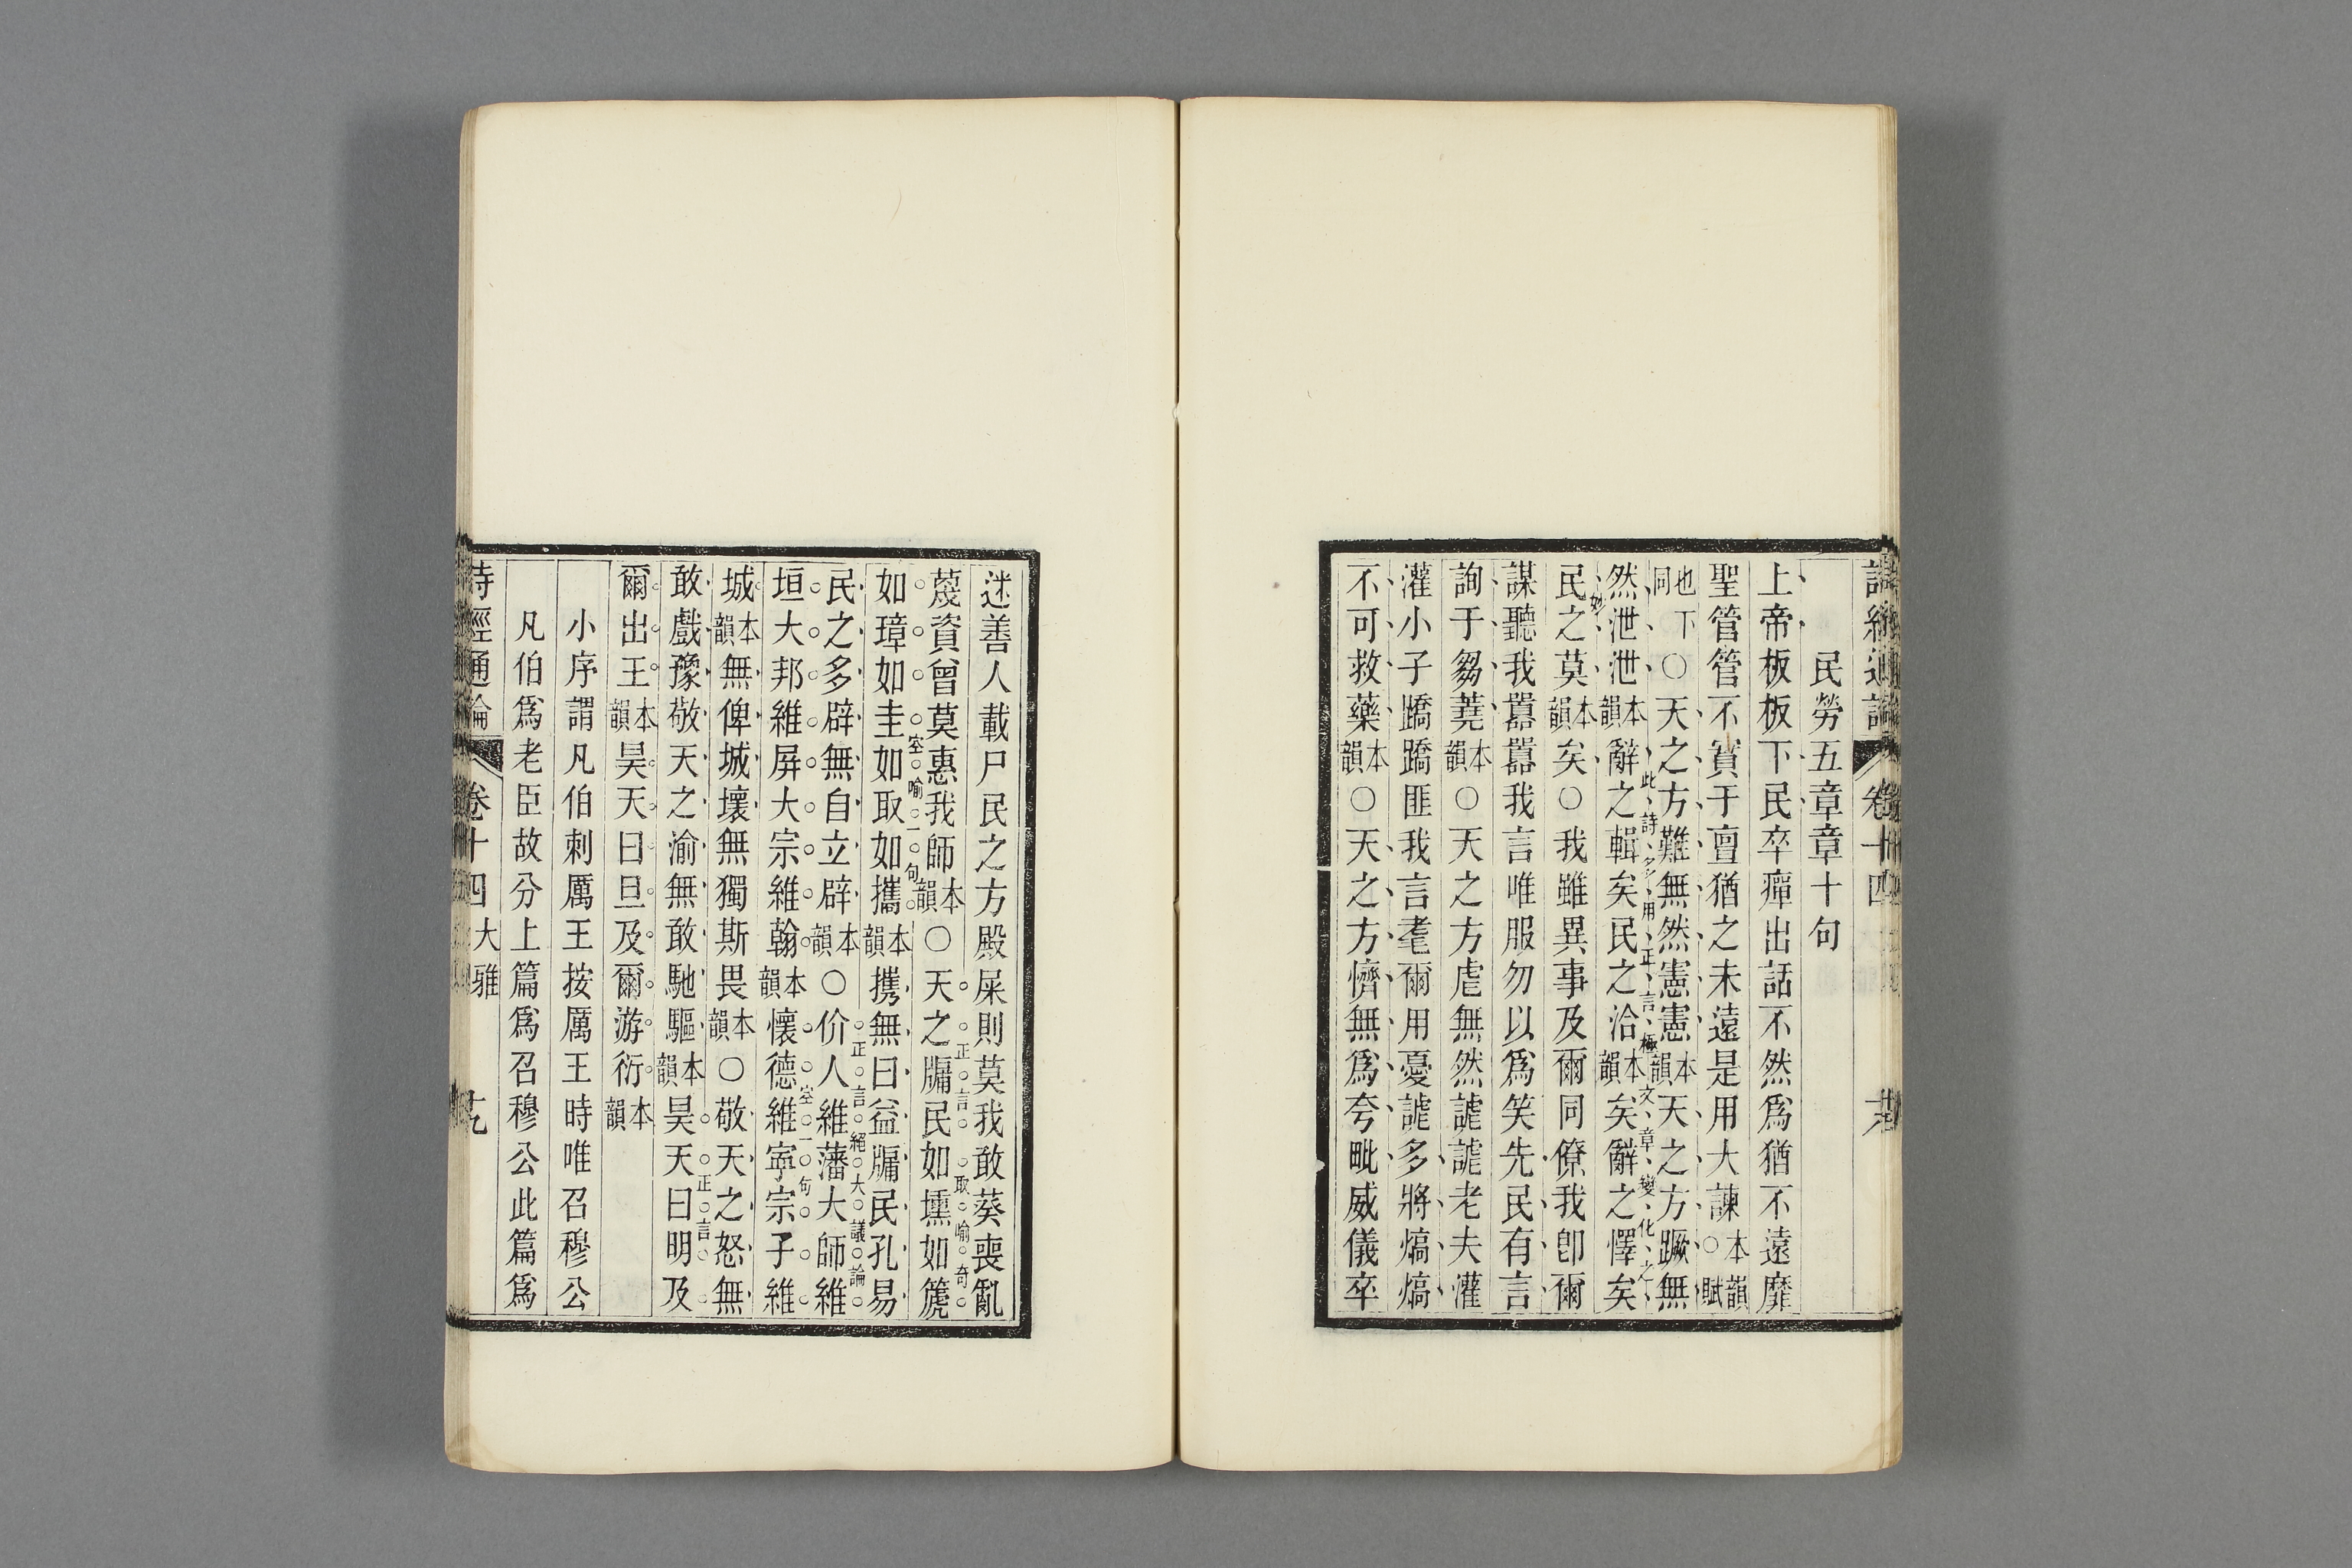 民勞五章章十句
上帝板板下民卒癉出話不然爲猶不遠靡
聖管管不實于亶猶之未遠是用大諫本韻○賦
也下同○天之方難無然憲憲本韻天之方蹶無
此詩多用正言極文章變化之妙
然泄泄本韻辭之輯矣民之洽本韻矣辭之懌矣
民之莫本韻矣○我雖異事及爾同僚我卽爾
謀聽我囂囂我言唯服勿以爲笑先民有言
詢于芻蕘本韻○天之方虐無然謔謔老夫灌
灌小子蹻蹻匪我言耄爾用憂謔多將熇熇
不可救藥本韻○天之方懠無爲夸毗威儀卒
迷善人載尸民之方殿屎則莫我敢葵喪亂
蔑資曾莫惠我師本韻○天之牖民如壎如篪
正言取喻奇
如璋如圭如取如攜本韻攜無曰益牖民孔易
室喻一句
民之多辟無自立辟本韻○价人維藩大師維
正言絕大議論
垣大邦維屏大宗維翰本韻懷德維寧宗子維
室一句
城本韻無俾城壞無獨斯畏本韻○敬天之怒無
敢戲豫敬天之渝無敢馳驅本韻昊天曰明及
正言
爾出王本韻昊天曰旦及爾游衍本韻
小序謂凡伯刺厲王按厲王時唯召穆公
凡伯爲老臣故分上篇爲召穆公此篇爲
詩經通論 卷十四 大雅 十九